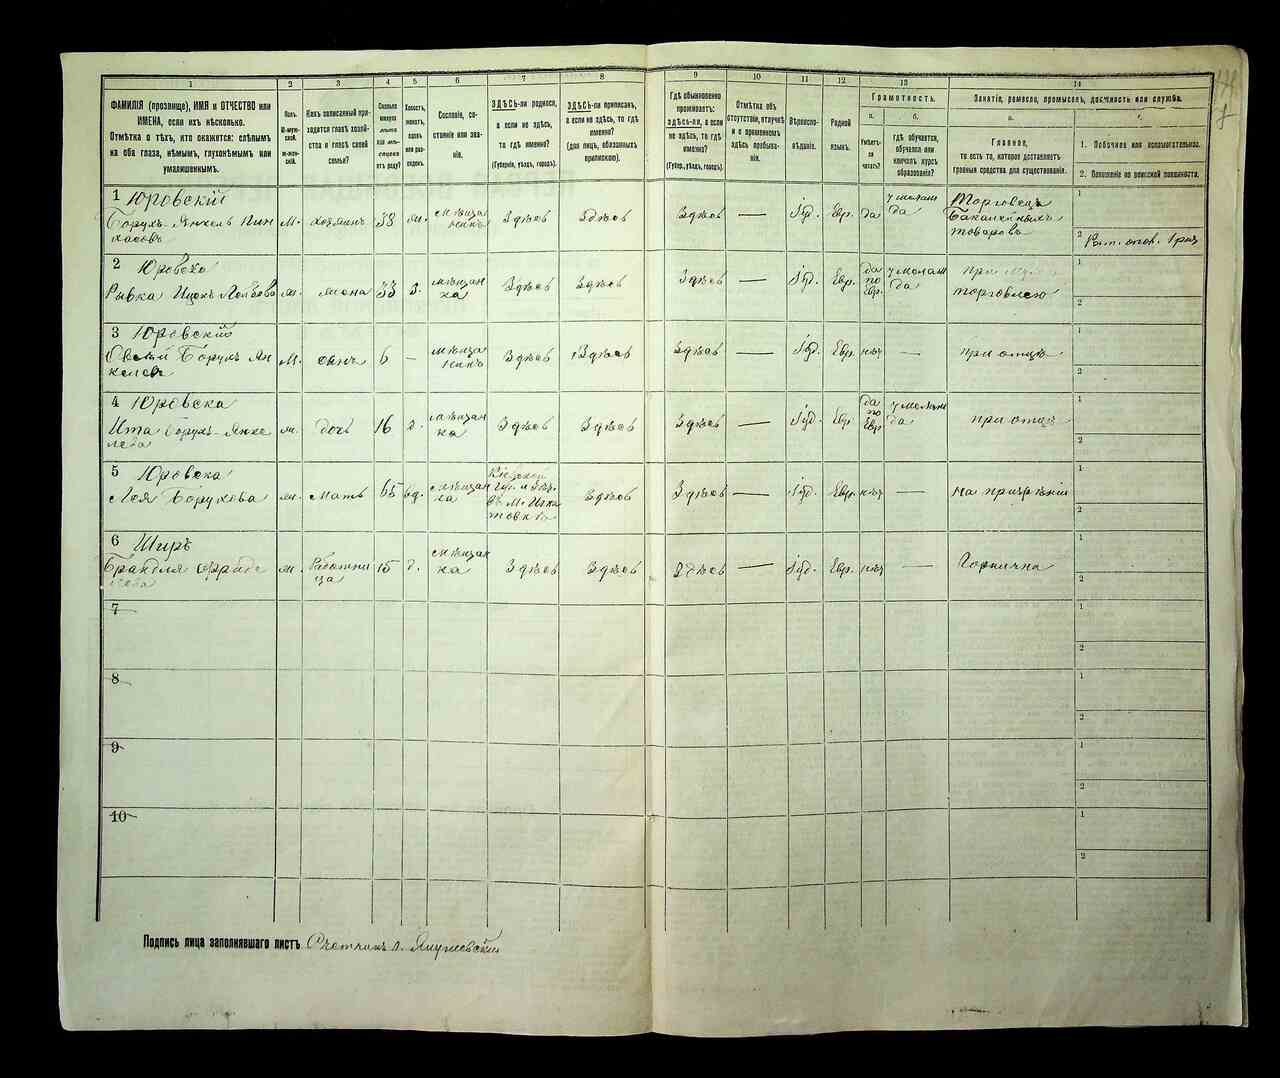 1 2 3 4 5 6 7 8 9 10 11 12 13 14
ФАМИЛІЯ (прозвище), ИМЯ и ОТЧЕСТВО или
ИМЕНА, если ихъ нѣсколько.
Отмѣтка о тѣхъ, кто окажется: слѣпымъ
на оба глаза, нѣмымъ, глухонѣмымъ или
умалишеннымъ.
Полъ.
М-муж-
ской.
Ж-жен-
скій.
Какъ записанный при-
ходится главѣ хозяй-
ства и главѣ своей
семьи?
Сколько
минуло
лѣтъ
или мѣ-
сяцевъ
отъ роду?
Холостъ,
женатъ,
вдовъ
или раз-
веденъ.
Сословіе, со-
стояніе или зва-
ніе.
ЗДѢСЬ-ли родился,
а если не здѣсь,
то гдѣ именно?
(Губернія, уѣздъ, городъ).
ЗДѢСЬ-ли приписанъ,
а если не здѣсь, то гдѣ
именно?
(для лицъ, обязанныхъ
припиской).
Гдѣ обыкновенно
проживаетъ:
здѣсь-ли, а если
не здѣсь, то гдѣ
именно?
(Губер., уѣздъ, городъ).
Отмѣтка объ
отсутствіи, отлучкѣ
и о временномъ
здѣсь пребыва-
ніи.
Вѣроиспо-
вѣданіе.
Родной
языкъ.
Грамотность.
а.
Умѣетъ-
ли
читать?
б.
гдѣ обучается,
обучался или
кончилъ курсъ
образованія?
Занятіе, ремесло, промыселъ, должность или служба.
а.
Главное,
то есть то, которое доставляетъ
главныя средства для существованія.
1. Побочное или вспомогательное.
2. Положеніе по воинской повинности.
1 Юровскій
Борухъ Янкель Пин
хасовъ
М. хозяинъ 33 ж. мѣща
нинъ Здѣсь Здѣсь Здѣсь — Іуд. Евр. да у мелам
да Торговецъ
бакалейныхъ
товаровъ
1
2 Рат. опол. 1 раз
2 Юровска
Рывка Ицек Лейбова ж. жена 33 з. мѣщан
ка Здѣсь Здѣсь Здѣсь — Іуд. Евр. да
по
Евр. у мелам
да при
торговлею
1
2
3 Юровскій
Борухъ Ян
келев М. сынъ 6 — мѣща
нинъ Здѣсь Здѣсь Здѣсь — Іуд. Евр. нѣт — при отцѣ
1
2
4 Юровска
Ита Борухъ-Янке
лева ж. дочь 16 д. мѣщан
ка Здѣсь Здѣсь Здѣсь — Іуд. Евр да
по
Евр. у мелам
да при отцѣ
1
2
5 Юровска
Лея Борухова ж. мать 65 вд. мѣщан
ка Кіевской
Губ.
М.
Здѣсь Здѣсь — Іуд. Евр. нѣт — на призрѣніи
1
2
6 Ширъ
ж. Работни
ца 15 д. мѣщан
ка Здѣсь Здѣсь Здѣсь — Іуд. Евр. нѣт — Горнична
1
2
7
1
2
8
1
2
9
1
2
10
1
2
Подпись лица заполнявшаго листъ Счетчикъ